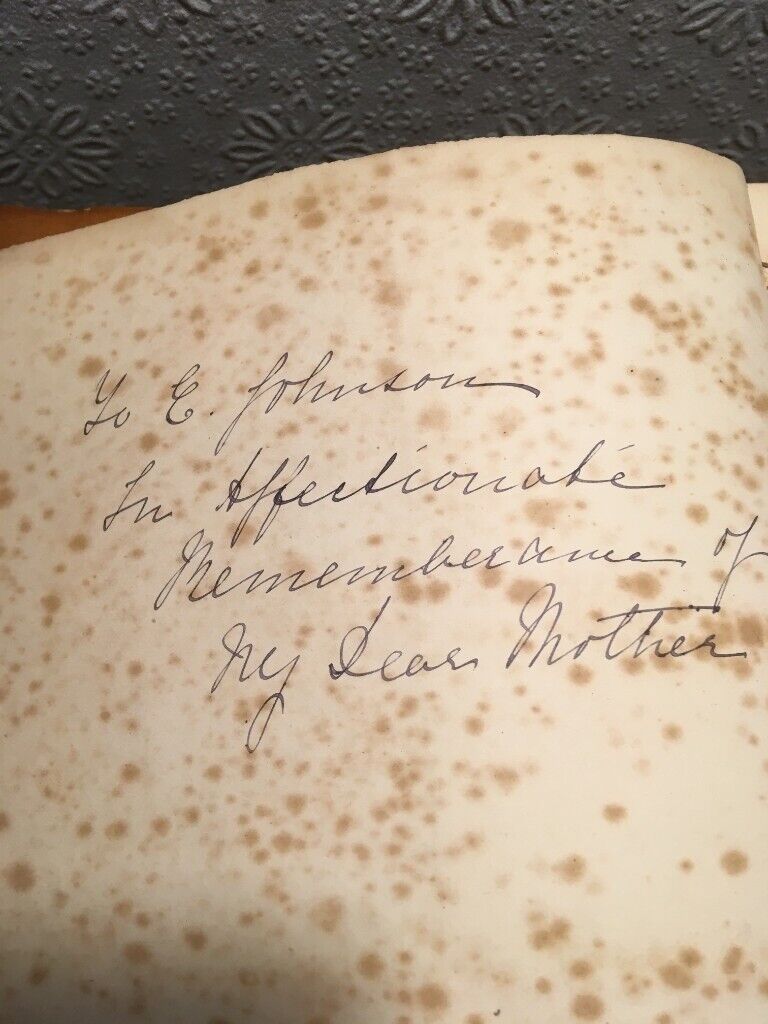 To E. Johnson
In Affectionate
Rememberance of
My Dear Mother